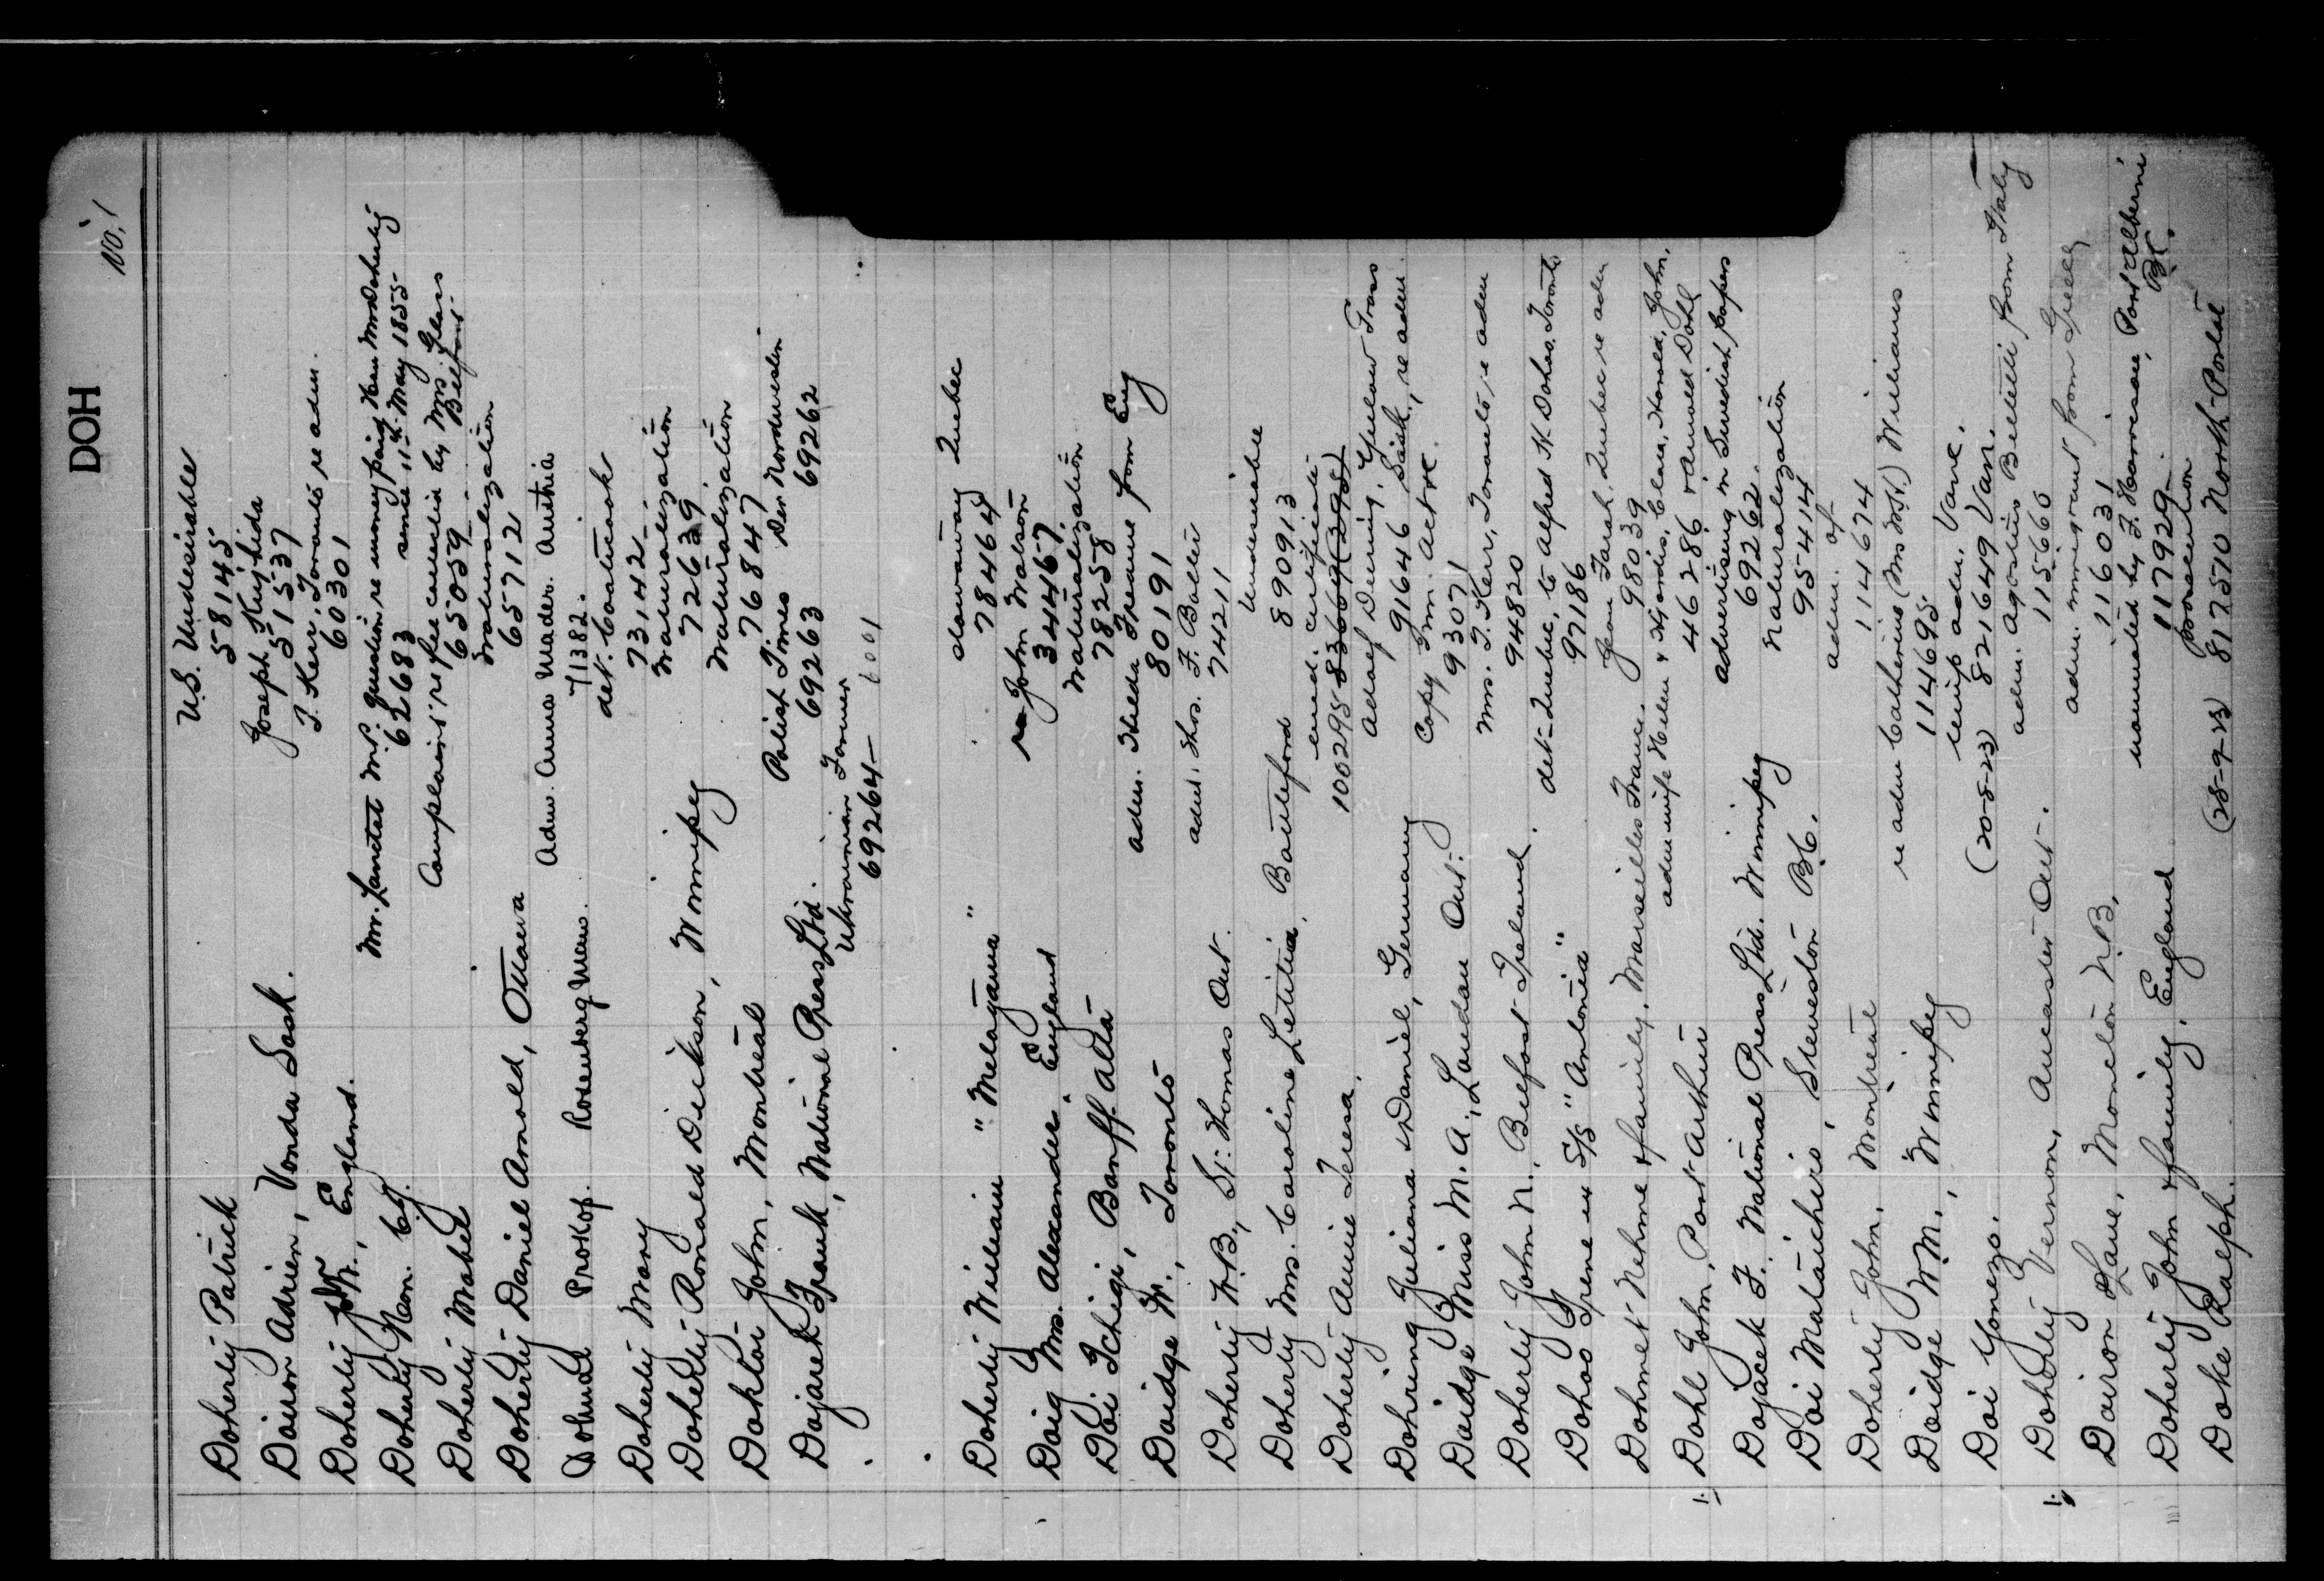 DOH
No. 1
Doherty Patrick U.S. Undesirable
58145
Doiron Adrien, Vonda Sask. Joseph
51537
Doherty W., England. T. Kerr, Toronto re adm.
60301
Doherty Hon. Chj. Mr. Lanctot M.P. question re money paid Hon Mr Doherty
62683 since 11th May 1855
Doherty Mabel Complaint re fee cancelled by Mrs. Glass
65059 Belfast
Doherty Daniel Arnold, Ottawa Naturalization
65712
Dohund Prokop. Rosenberg Man. Adm. Anna Mader. Austria
71382.
Doherty Mary det. Coaticook
73142
Doherty Ronald Dickson, Winnipeg Naturalization
72639
Doktor John, Montreal Naturalization
76847
Dojacek Frank, National Press Ltd. Polish Times Der Nordwesten
69263 69262
Ukrainian Farmer
69264
Doherty William "Melagama" stowaway Quebec
78464
Doig Mrs. Alexander. England re John Watson
344467
Doi Ichigi, Banff. Alta Naturalization
78258
Doidge W., Toronto adm. Hilda Treanie from Eng
80191
Doherty W.B., St. Thomas Ont. adm. Thos. F. Balter
74211
Doherty Mrs. Caroline Letitia. Battleford Undesirable
890913
Doherty Annie Teresa. emed. certificate
100295 83669 (2395)
Dohring Juliana & Daniel, Germany Adolf Deming, Yellow Grass
91646 Sask., re adm.
Doidge Miss M. A., London Ont. Copy Imm. Act re.
93071
Doherty John N., Belfast Ireland. Mrs. T. Kerr, Toronto, re adm
94820
Dohoo Irene ex S/S "Antonia" det. Quebec, to Alfred H. Dohoo, Toronto
97186
Dohmet Nehme & family, Marseilles France. Jean Farah, Quebec re adm
98039
Dohl John, Port Arthur adm wife Helen & Hjordis, Clara, Harold, John,
46286 & Arnold Dohl
Dojacek F. National Press Ltd. Winnipeg advertising in Swedish papers
69262.
Doi Mataichiro, Steveston B.C. Naturalization
95414
Doherty John, Montreal adm. of
114674
Doidge W.M., Winnipeg re adm Catherine (Mrs W.H.) Williams
114695.
Doi Yonezo. temp adm. Vanc.
(20-5-23) 821649 Van.
Doherty Vernon, Ancaster Ont. adm. Agostino Belletti from Italy
115660
Doiron Jane, Moncton N.B. adm. immigrant from Greece
116031
Doherty John & family, England nominated by F. Harrison, Port Alberni
117929 B.C.
Doke Ralph. prosecution
(28-9-23) 817570 North-Portal